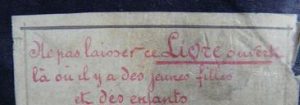 Ne pas laisser ce Livre ouvert
là où il y a des jeunes filles
et des enfants